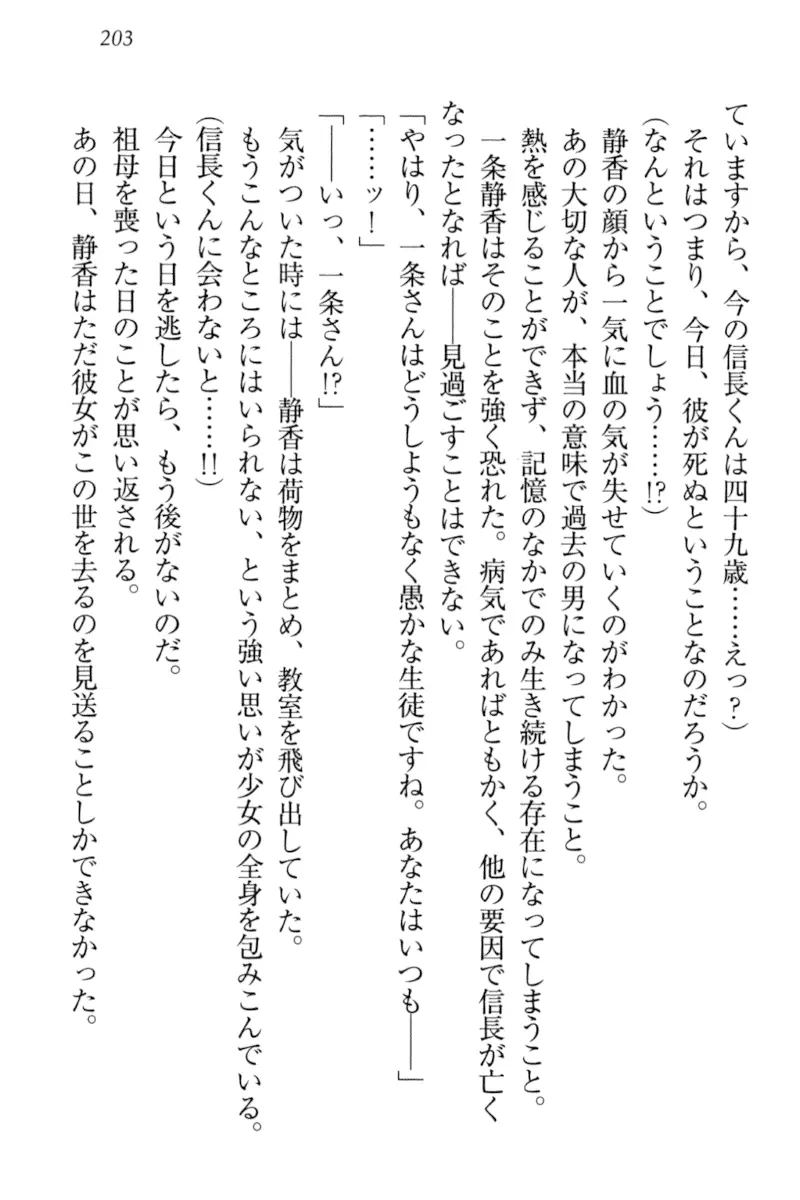 203
ていますから、今の信長くんは四十九歳……えっ？）
それはつまり、今日、彼が死ぬということなのだろうか。
（なんということでしょう……!?）
静香の顔から一気に血の気が失せていくのがわかった。
あの大切な人が、本当の意味で過去の男になってしまうこと。
熱を感じることができず、記憶のなかでのみ生き続ける存在になってしまうこと。
一条静香はそのことを強く恐れた。病気であればともかく、他の要因で信長が亡く
なったとなれば――見過ごすことはできない。
「やはり、一条さんはどうしようもなく愚かな生徒ですね。あなたはいつも――」
「……ッ！」
「――いっ、一条さん!?」
気がついた時には――静香は荷物をまとめ、教室を飛び出していた。
もうこんなところにはいられない、という強い思いが少女の全身を包みこんでいる。
（信長くんに会わないと……!!）
今日という日を逃したら、もう後がないのだ。
祖母を喪った日のことが思い返される。
あの日、静香はただ彼女がこの世を去るのを見送ることしかできなかった。